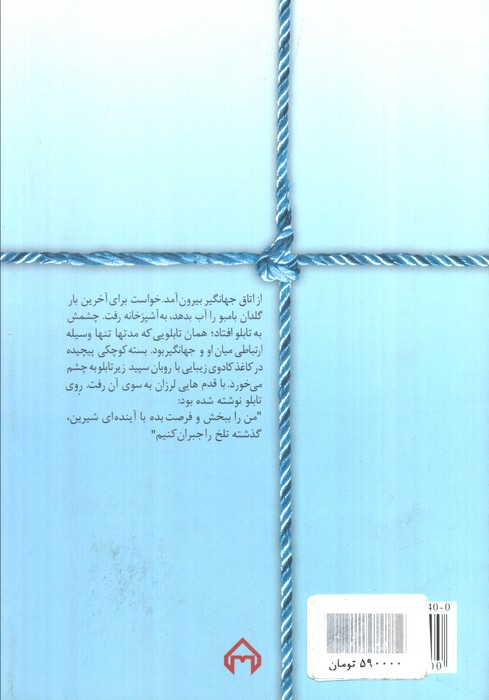 از اتاق جهانگیر بیرون آمد. خواست برای آخرین بار
گلدان بامبو را آب بدهد، به آشپزخانه رفت. چشمش
به تابلو افتاد؛ همان تابلویی که مدتها تنها وسیله
ارتباطی میان او و جهانگیر بود. بسته کوچکی پیچیده
در کاغذ کادوی زیبایی با روبان سپید زیر تابلو به چشم
می‌خورد. با قدم هایی لرزان به سوی آن رفت. روی
تابلو نوشته شده بود:
"من را ببخش و فرصت بده با آینده‌ای شیرین،
گذشته تلخ را جبران کنیم"
40-0
00
۵۹۰۰۰۰ تومان